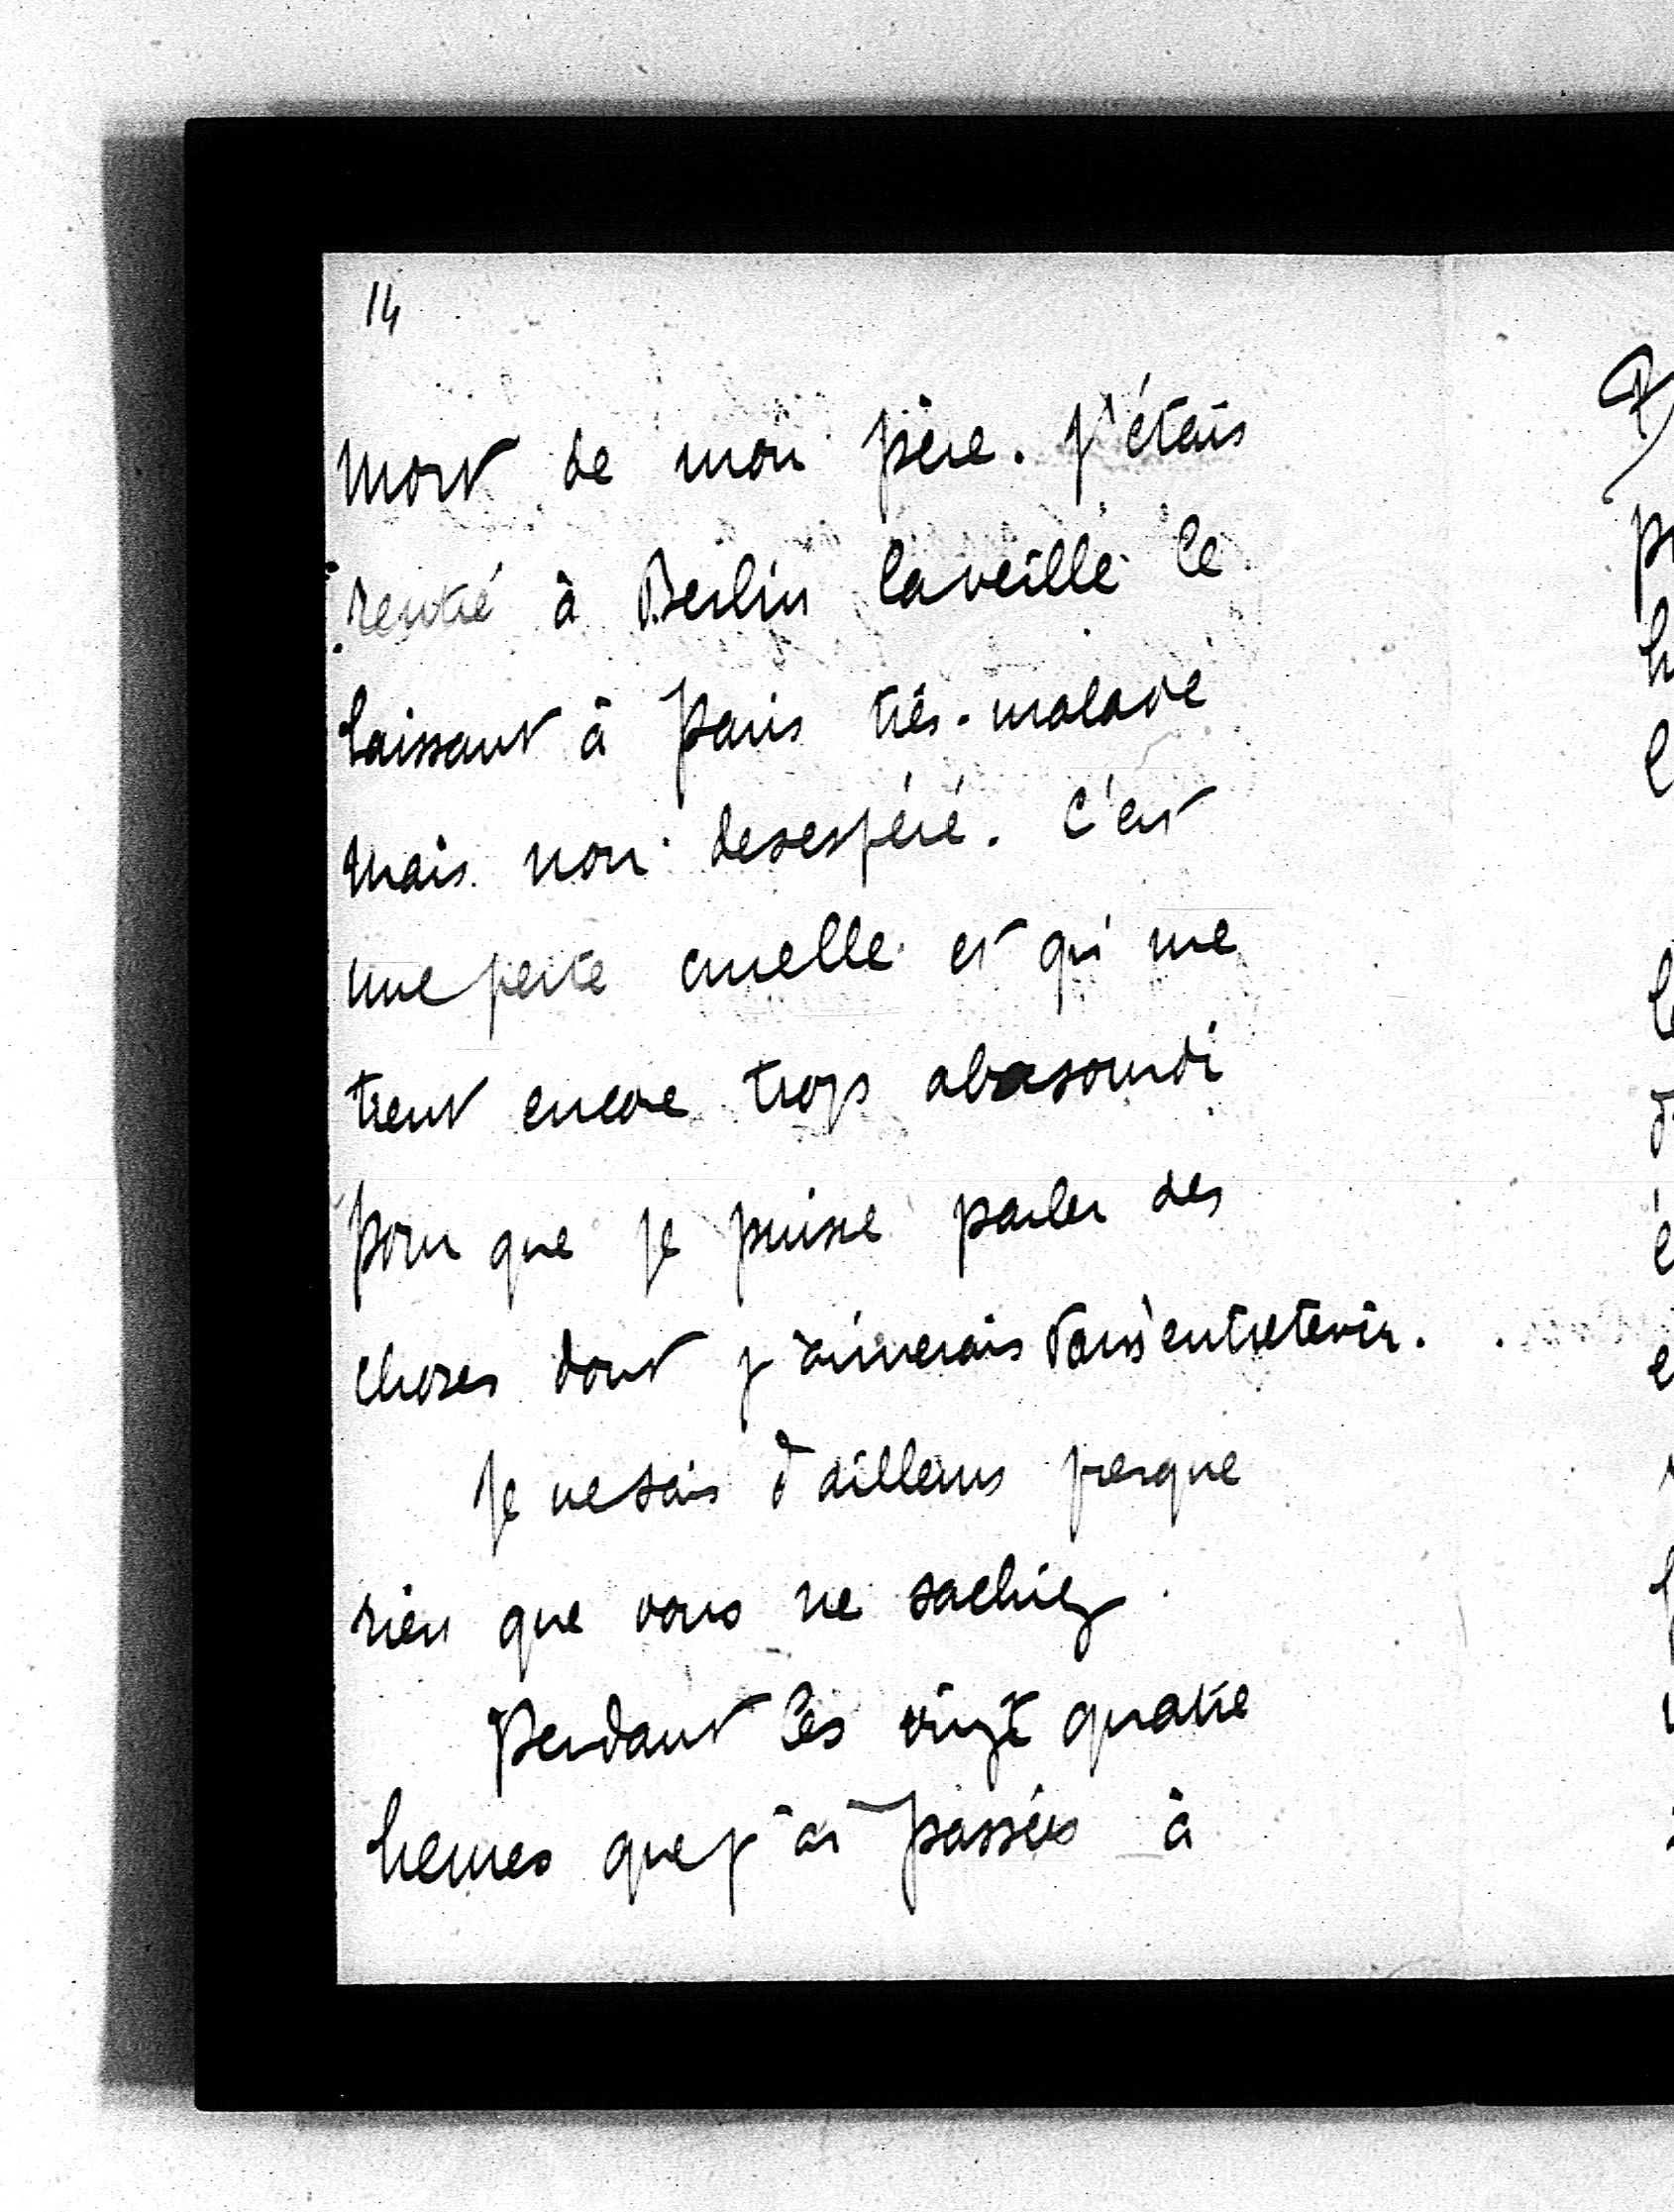 14
mort de mon père. J'étais
rentré à Berlin la veille le
laissant à Paris très-malade
mais non desespéré. C'est
une perte cruelle et qui me
tient encore trop abasourdi
pour que je puisse parler des
choses dont j'aimerais vous entretenir.
Je ne sais d'ailleurs presque
rien que vous ne sachiez
Pendant les vingt quatre
heures que j'ai passées à